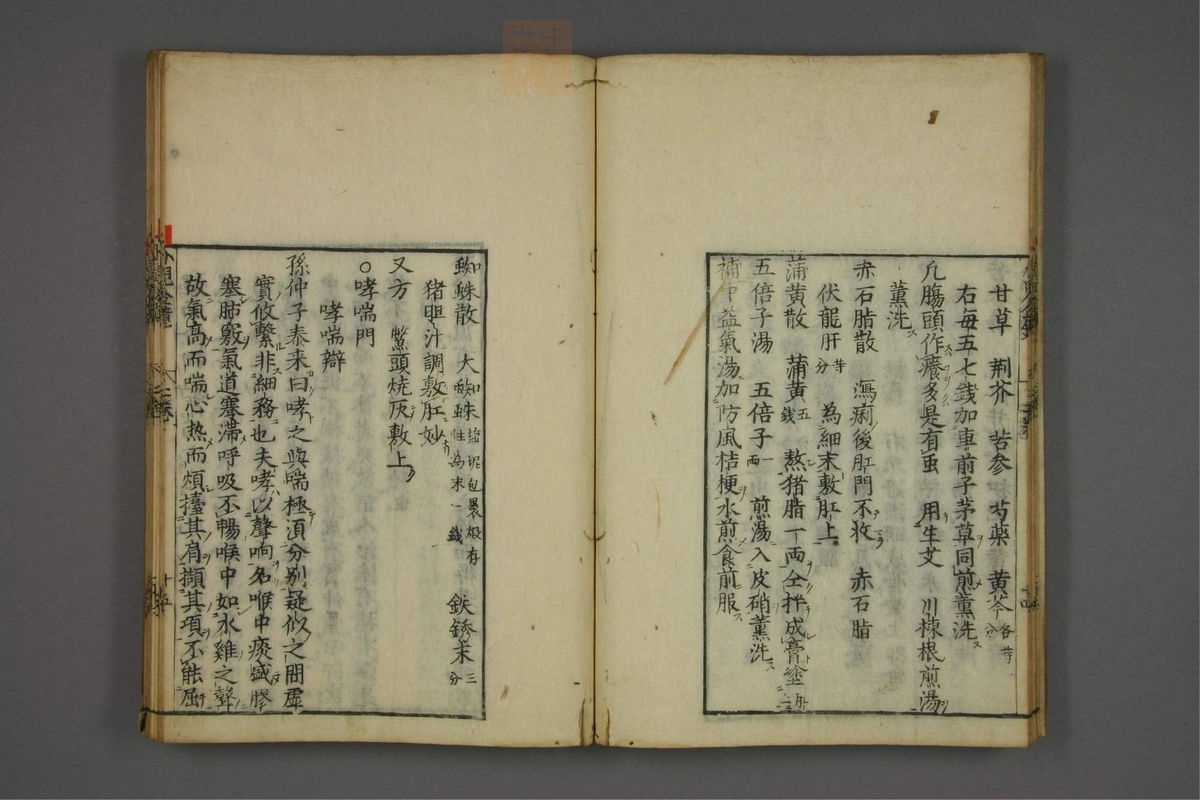 甘草 荆芥 苦参 芍薬 黄芩各等分
右毎五七銭加車前子茅草同煎薰洗
凢膓頭作癢多是有虫 用生艾 川楝根煎湯
薰洗
赤石脂散 瀉痢後肛門不收 赤石脂
伏龍肝等分 為細末敷肛上
蒲黄散 蒲黄五銭 熬猪脂一両仝拌成膏塗肛上
五倍子湯 五倍子一両 煎湯入皮硝薰洗
補中益氣湯加防風桔梗水煎食前服
蜘蛛散 大蜘蛛塩泥包裹煅存性為末一銭 鉄銹末三分
猪胆汁調敷肛妙
又方 鱉頭燒灰敷上
〇哮喘門
哮喘辯
孫仲子泰来曰哮之與喘極湏分别疑似之間虚
實攸繫非細務也夫哮以聲响名喉中痰盛膠
塞肺竅氣道蹇滞呼吸不暢喉中如水雞之聲
故氣高而喘心热而煩擡其肩擷其項不能屈